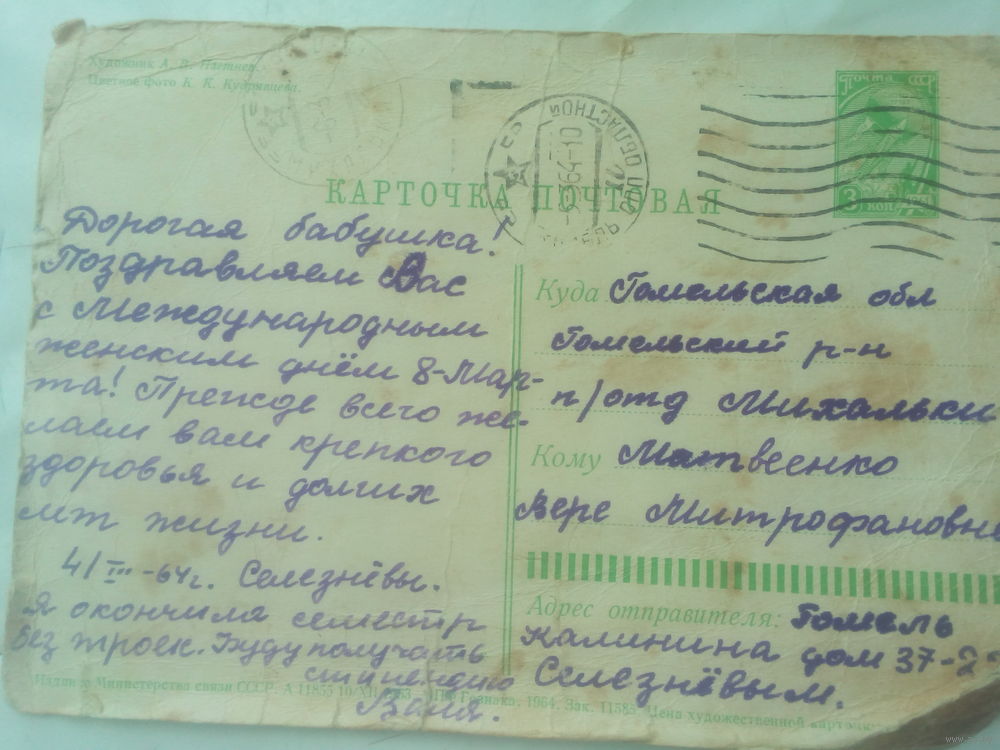 Художник А. В. Плетнев.
Цветное фото К. К. Кудрявцева.
Почта СССР
3 коп
КАРТОЧКА ПОЧТОВАЯ
Дорогая бабушка!
Поздравляем Вас
с Международным
женским днём 8-Мар-
та! Прежде всего же-
лаем вам крепкого
здоровья и долгих
лет жизни.
4/III-64г. Селезнёвы.
Я окончила семестр
без троек. Буду получать
стипендию
Валя.
Куда Гомельская обл
Гомельский р-н
п/отд Михальки
Кому Матвеенко
Вере Митрофановне
Адрес отправителя: Гомель
Калинина дом 37-2
Селезнёвым.
Министерства связи СССР. А 11855 10/XII 1963
Гознака. 1964. Зак. 11585. Цена художественной карточки